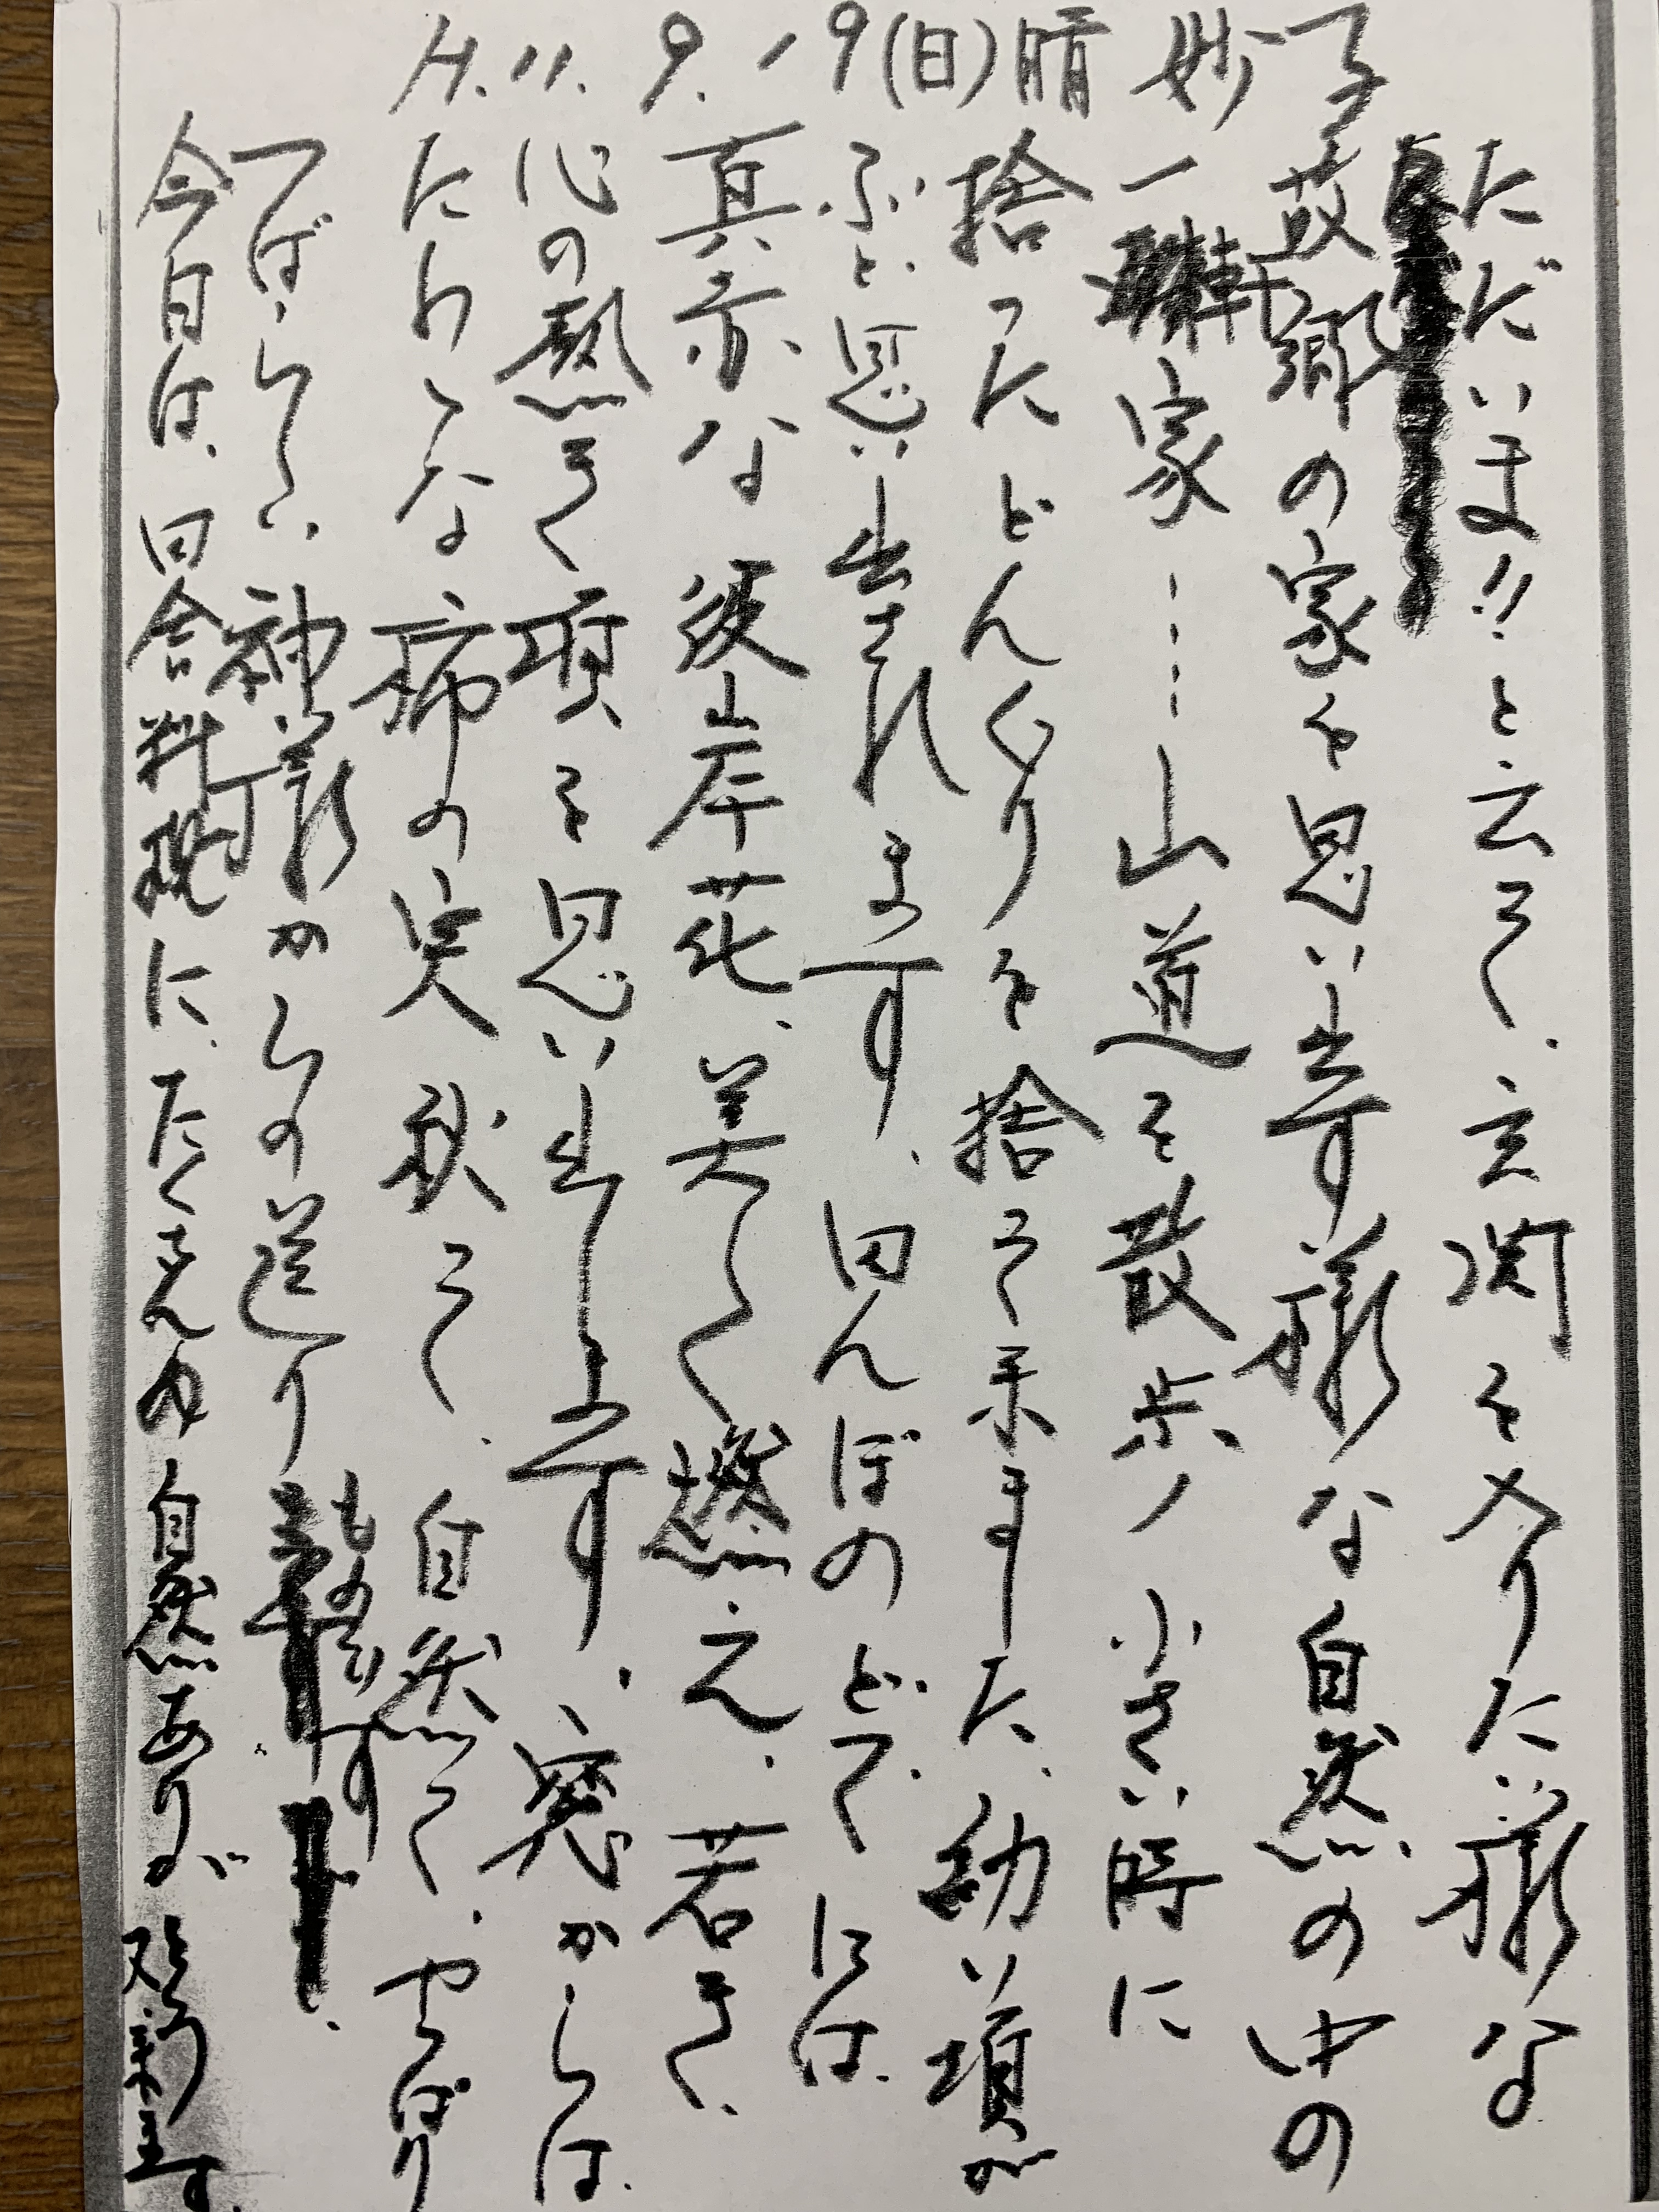 H.11.9.19(日)晴 妙子
ただいま!!と云って、玄関を入りたい様な
故郷の家を思い出す様な自然の中の
一軒家……山道を散歩 小さい時に
捨ったどんぐりを捨って来ました、幼い頃が
ふと思い出されます、田んぼのどてには、
真赤な彼岸花、美しく燃え、若き、
心の熱き頃を思い出します、窓からは、
たわわな柿の実 秋って、自然って、やっぱり
すばらしい、神様からの送りものです
今日は、田舎料理に、たくさんの自然ありがとう 又、来ます。